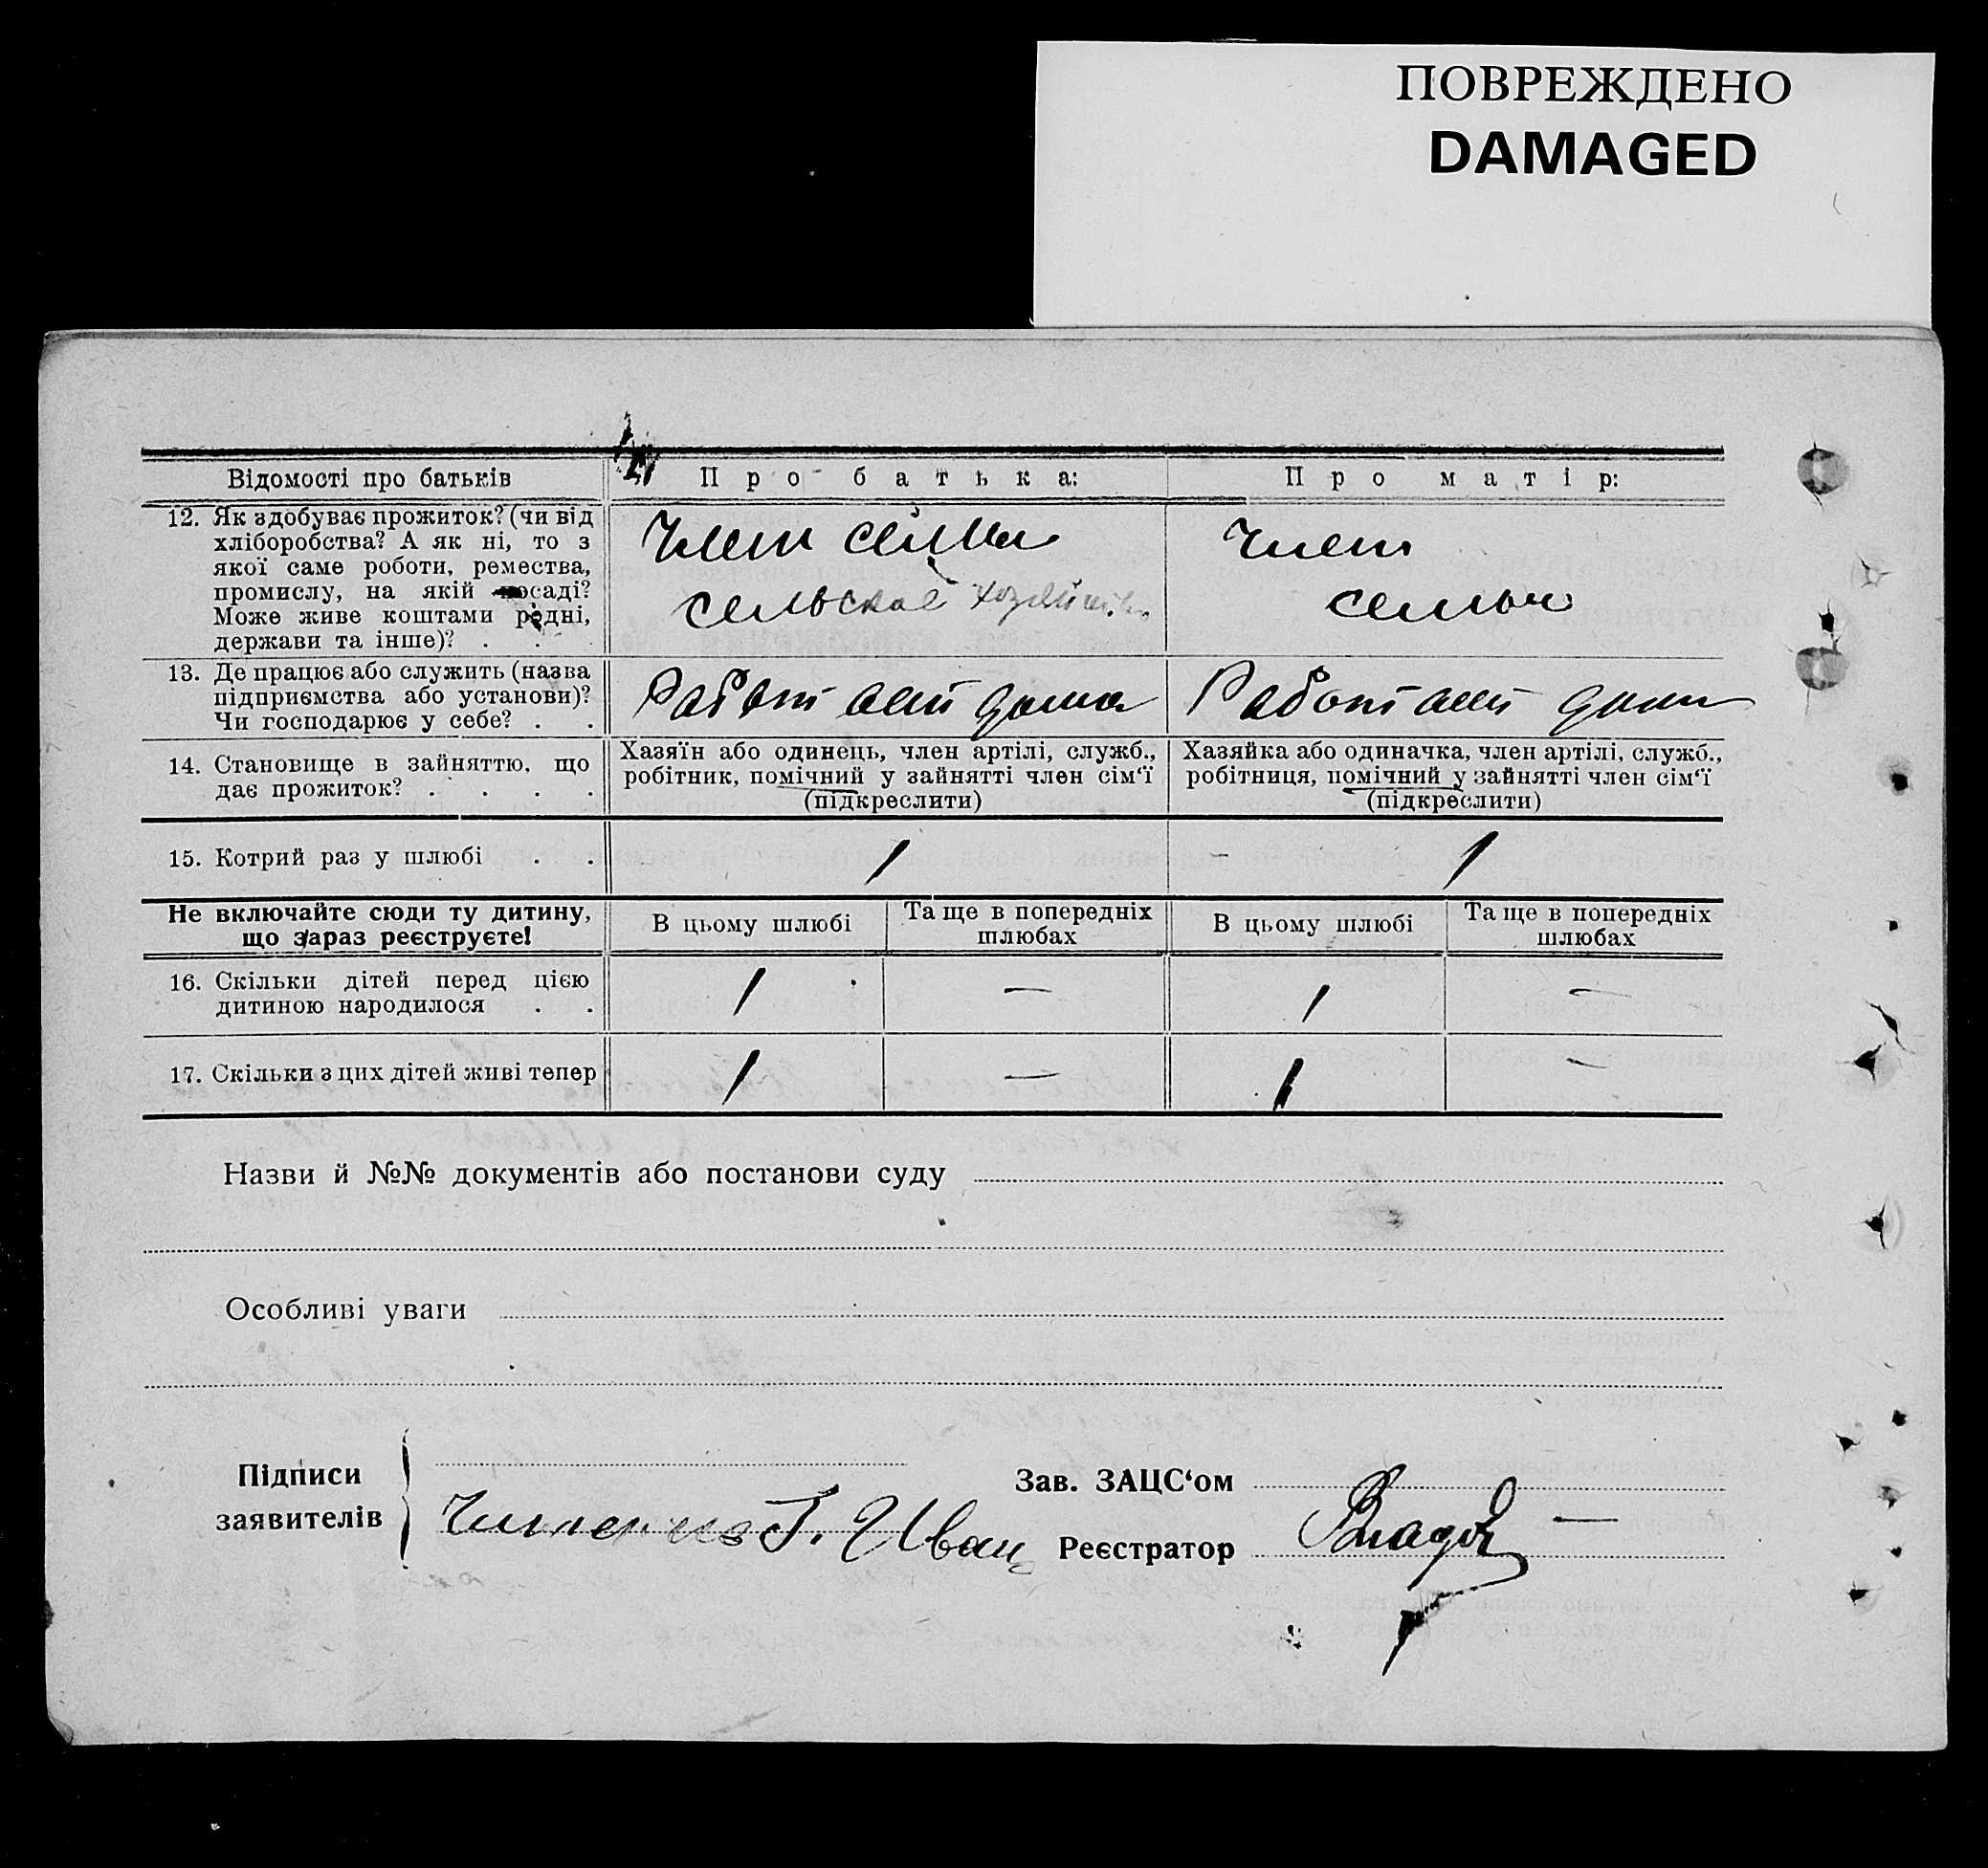 ПОВРЕЖДЕНО
DAMAGED
Відомості про батьків
Про батька:
Про матір:
12. Як здобуває прожиток? (чи від
хліборобства? А як ні, то з
якої саме роботи, ремества,
промислу, на якій посаді?
Може живе коштами рідні,
держави та інше)? . . .
Член семьи
сельское хозяйство
Член
семьи
13. Де працює або служить (назва
підприємства або установи)?
Чи господарює у себе? . .
Работает дома
Работает дома
14. Становище в зайняттю, що
дає прожиток? . . . .
Хазяїн або одинець, член артілі, служб.,
робітник, помічний у зайнятті член сім‘ї
(підкреслити)
Хазяйка або одиначка, член артілі, служб.,
робітниця, помічний у зайнятті член сім‘ї
(підкреслити)
15. Котрий раз у шлюбі . .
1
1
Не включайте сюди ту дитину,
що зараз реєструєте!
В цьому шлюбі
Та ще в попередніх
шлюбах
В цьому шлюбі
Та ще в попередніх
шлюбах
16. Скільки дітей перед цією
дитиною народилося . .
1
—
1
—
17. Скільки з цих дітей живі тепер
1
—
1
—
Назви й №№ документів або постанови суду
Особливі уваги
Підписи
заявителів
Г. Иван
Зав. ЗАЦС‘ом
Реєстратор